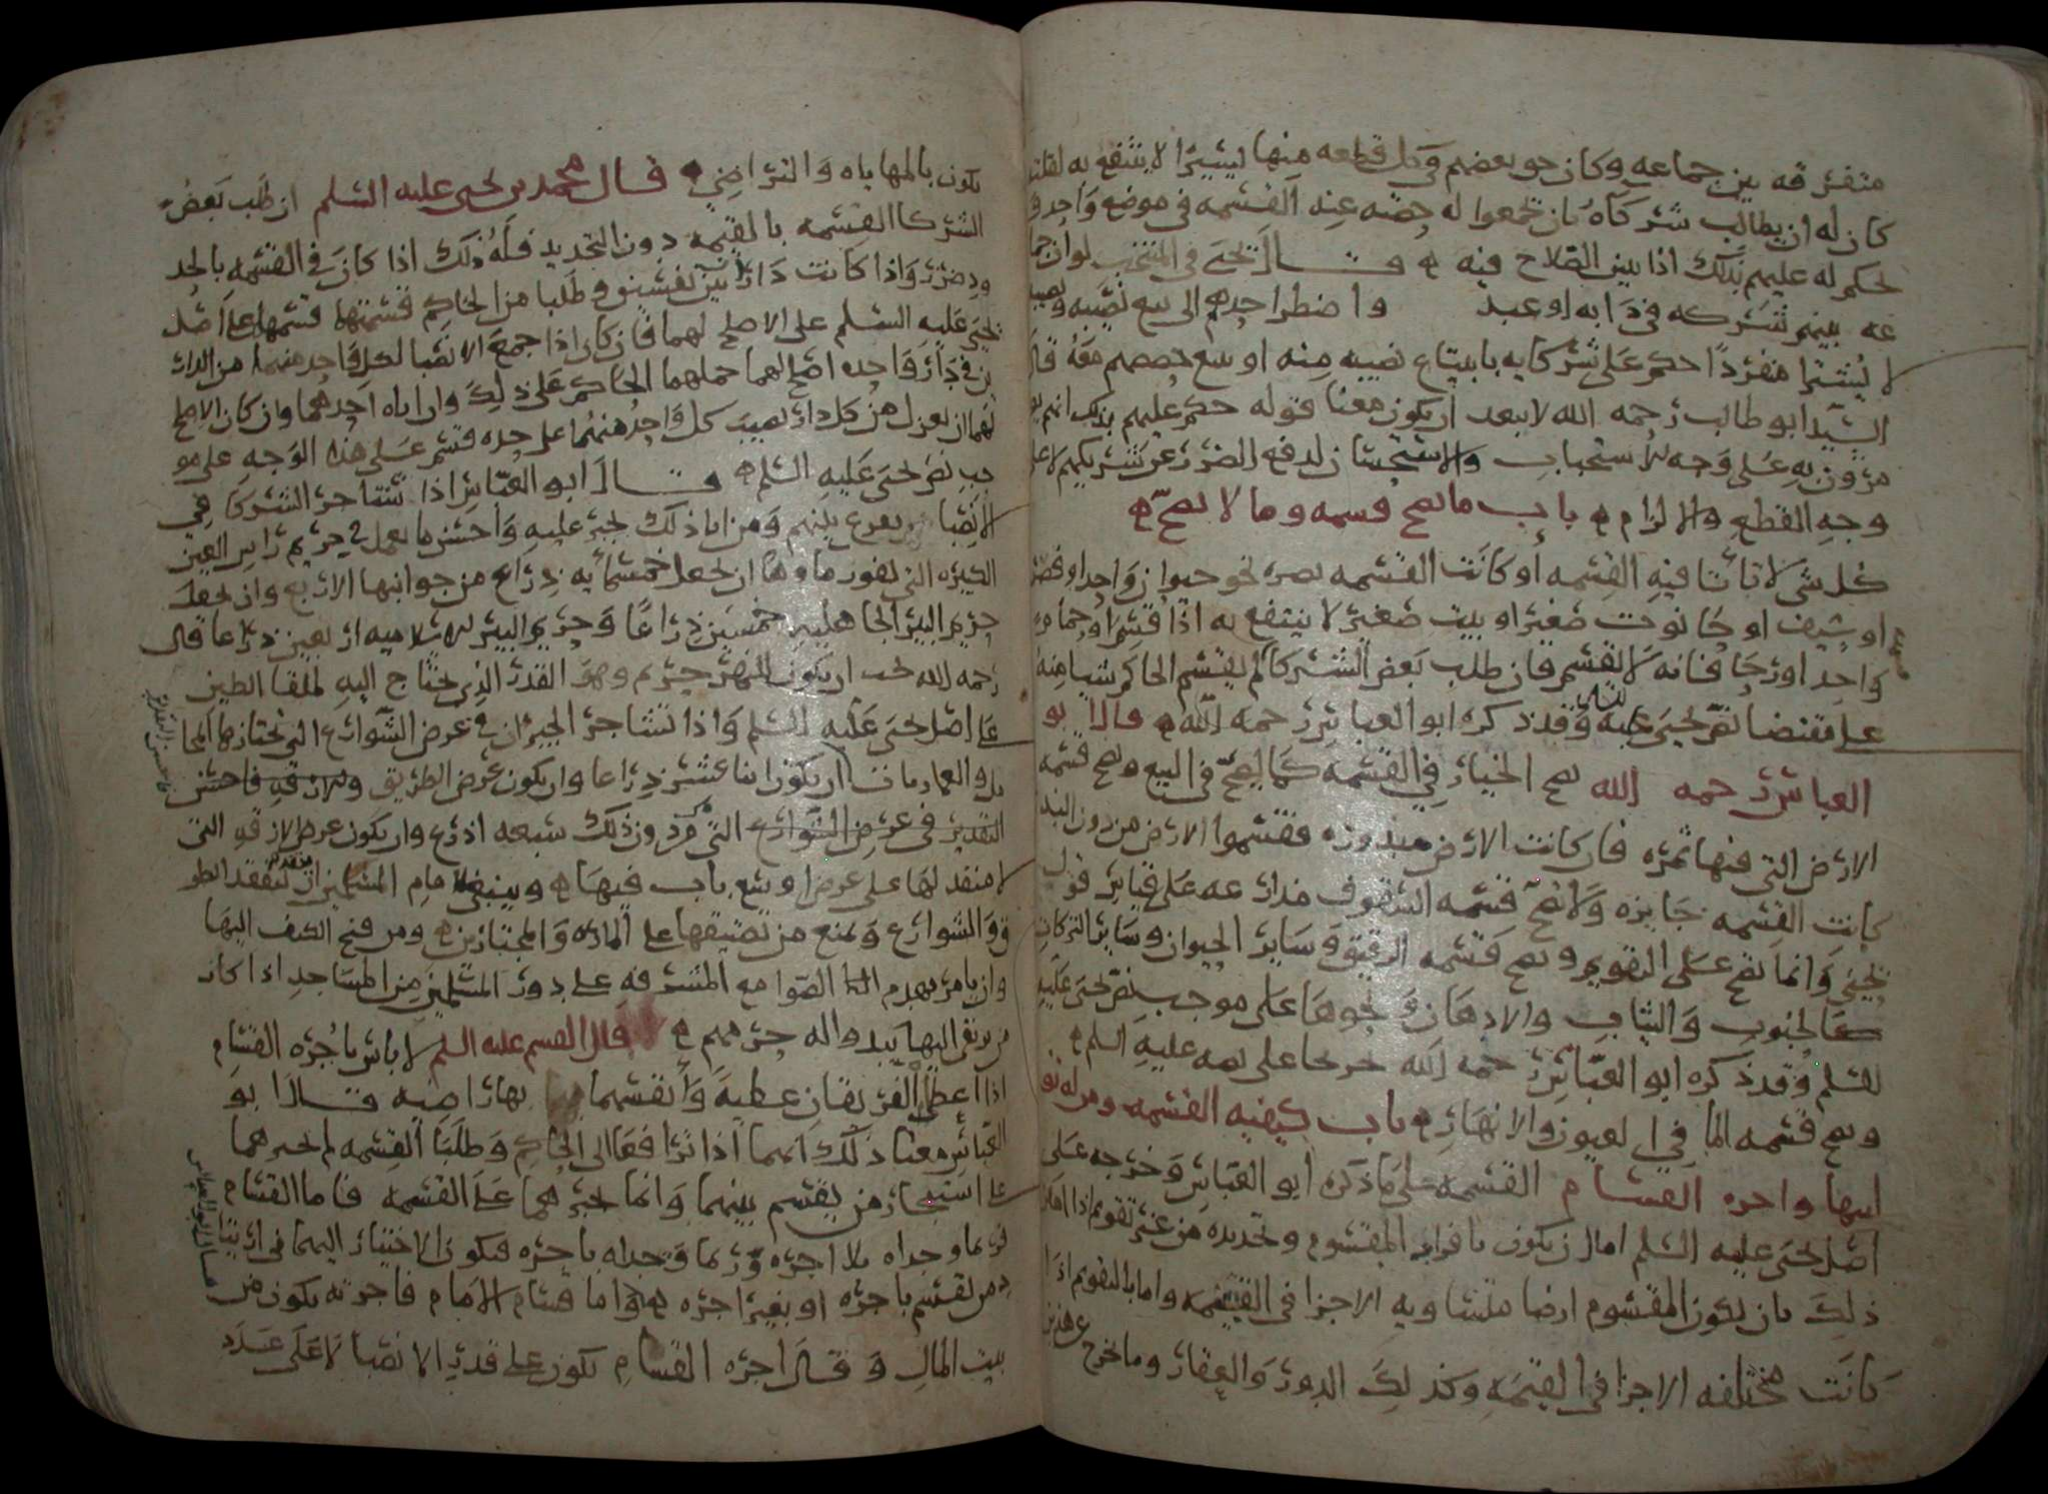 متفرقه بين جماعه وكان حق بعضهم في كل قطعه منها يسيرا لا ينتفع به لقلته
كان له ان يطالب شركاه بان يجمعوا له حصته عنه القسمه في موضع واحد و
يحكم له عليهم بذلك اذا بين الصلاح فيه ه قال يحيى في المنتخب لو ان جما
عه بينهم شركه في دابه او عبد واضطر احدهم الى بيع نصيبه ونصيبه
لا يشترا منفردا حكم على شركايه بابتياع نصيبه منه او بيع حصصهم معه قال
السيد ابو طالب رحمه الله لا يبعد ان يكون معنا قوله حكم عليهم بذلك انهم يو
مرون به على وجه الاستحباب والاستحسان لدفع الضرر عن شريكهم لا على
وجه القطع والالزام ه باب ما يصح قسمه وما لا يصح ه
كل شي لا تاتا فيه القسمه او كانت القسمه تضره نحو حيوان واحد او فص
او سيف او حانوت صغير او بيت صغير لا ينتفع به اذا قسم او حمام
واحد او رحا فانه لا يقسم فان طلب بعض الشركا لم يقسم الحاكم شيا منه
على مقتضا نص يحيى عليه وقد ذكره ابو العباس رحمه الله ه قال ابو
العباس رحمه الله يصح الخيار في القسمه كما يصح في البيع ويصح قسمه
الارض التي فيها ثمره فان كانت الارض مبذوره فقسموا الارض من دون البذر
كانت القسمه جايزه ولا تصح قسمه السقوف مذارعه على قياس قول
يحيى وانما تصح على التقويم ويصح قسمه الرقيق وساير الحيوان وساير التركات
كالحبوب والثياب والادهان ونحوها على موجب نص يحيى عليه
السلم وقد ذكره ابو العباس رحمه الله خرجا على نصه عليه السلم ه
ويصح قسمه الما في العيون والانهار ه باب كيفيه القسمه ومن له تو
ليها واجره القسام القسمه على ما ذكره ابو العباس وخرجه على
اصل يحيى عليه السلم اما ان يكون بافراز المقسوم وتحديده من غير تقويم اذا امكن
ذلك بان يكون المقسوم ارضا متساويه الاجزا في القيمه واما بالتقويم اذا
كانت مختلفه الاجزا في القيمه وكذلك الدور والعقار وما خرج عن هذين
يكون بالمهاياه والتراضي ه قال محمد بن يحيى عليه السلم ان طلب بعض
الشركا القسمه بالقيمه دون التحديد فله ذلك اذا كان في القسمه بالحد
ود ضرر واذا كانت دار بين نفسين و طلبا من الحاكم قسمتها قسمها على اصل
يحيى عليه السلم على الاصلح لهما فان كان اذا جمع الانصبا لكل واحد منهما من الدار
ين في دار واحده اصلح لهما حملهما الحاكم على ذلك وان اباه احدهما وان كان الاصلح
لهما ان يعزل من كل دار نصيب كل واحد منهما على حده قسم على هذا الوجه على مو
جب نص يحيى عليه السلم ه قال ابو العباس اذا تشاجر الشركا في
الانصبا يقرع بينهم ومن ابا ذلك يجبر عليه واحسن ما يعمل في حريم راس العين
الكبيره التي يفور ماوها ان يجعل خمسمايه ذراع من جوانبها الاربع وان يجعل
حريم البير الجاهليه خمسين ذراعا وحريم البير الاسلاميه اربعين ذراعا قال
رحمه الله يجب ان يكون للنهر حريم وهو القدر الذي يحتاج اليه لملقا الطين
على اصل يحيى عليه السلم واذا تشاجر الجيران في عرض الشوارع التي تجتاز بها المحا
مل والعماريات ان يكون اثنا عشر ذراعا وان يكون عرض الطريق والازقه فاحسن
التقدير في عرض الشوارع التي دون ذلك سبعه اذرع وان يكون عرض الازقه التي
لا منفذ لها على عرض اوسع باب فيها ه وينبغي لامام المسلمين ان يتفقد الطر
ق والشوارع ويمنع من تضييقها على الماره والمجتازين ه ومن فتح الكنف اليها
وان يامر بهدم الصوامع المشرفه على دور المسلمين من المساجد اذا كان
من يرقى اليها يبدوا له حرمهم ه قال القسم عليه السلم لا باس باجره القسام
اذا اعطى الفريقان عطيه وانقسما بها راضيه قال ابو
العباس معنا ذلك انهما اذا ترافعا الى الحاكم وطلبا القسمه لم يجبرهما
على استيجار من يقسم بينهما وانما يجبرهما على القسمه فاما القسام
فربما وجداه بلا اجره وربما وجداه باجره فيكون الاختيار اليهما في ارتيا
د من يقسم باجره او بغير اجره ه واما قسام الامام فاجرته يكون من
بيت المال و قال اجره القسام يكون على قدر الانصبا لا على عدد